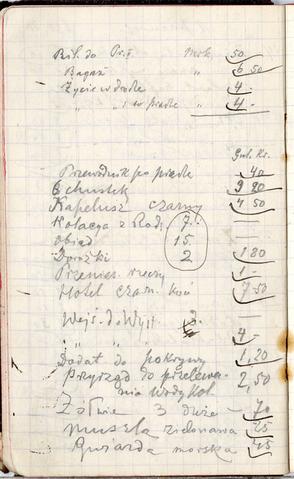 Bil. do Mrk. 50
Bagaż " 6 50
Życie w drodze 4 -
" " i w " 4 -
Guld. Kr.
Przewodnik po - 40
6 chustek 9 80
Kapelusz czarny 4 50
Kolacja z 7.
Obiad 15.
Dorożki 2 1 80
Przenies. rzeczy 1 -
Hotel czarn. koń 7 50
Wejś. do Wyst. 3.
" " " 4 -
Dodat. do pokrywy 1,20
Przyrząd do przelewa- 2,50
nia wody kol.
Żółwie 3 duże - 70
muszla zielonawa 25
Gwiazda morska 45